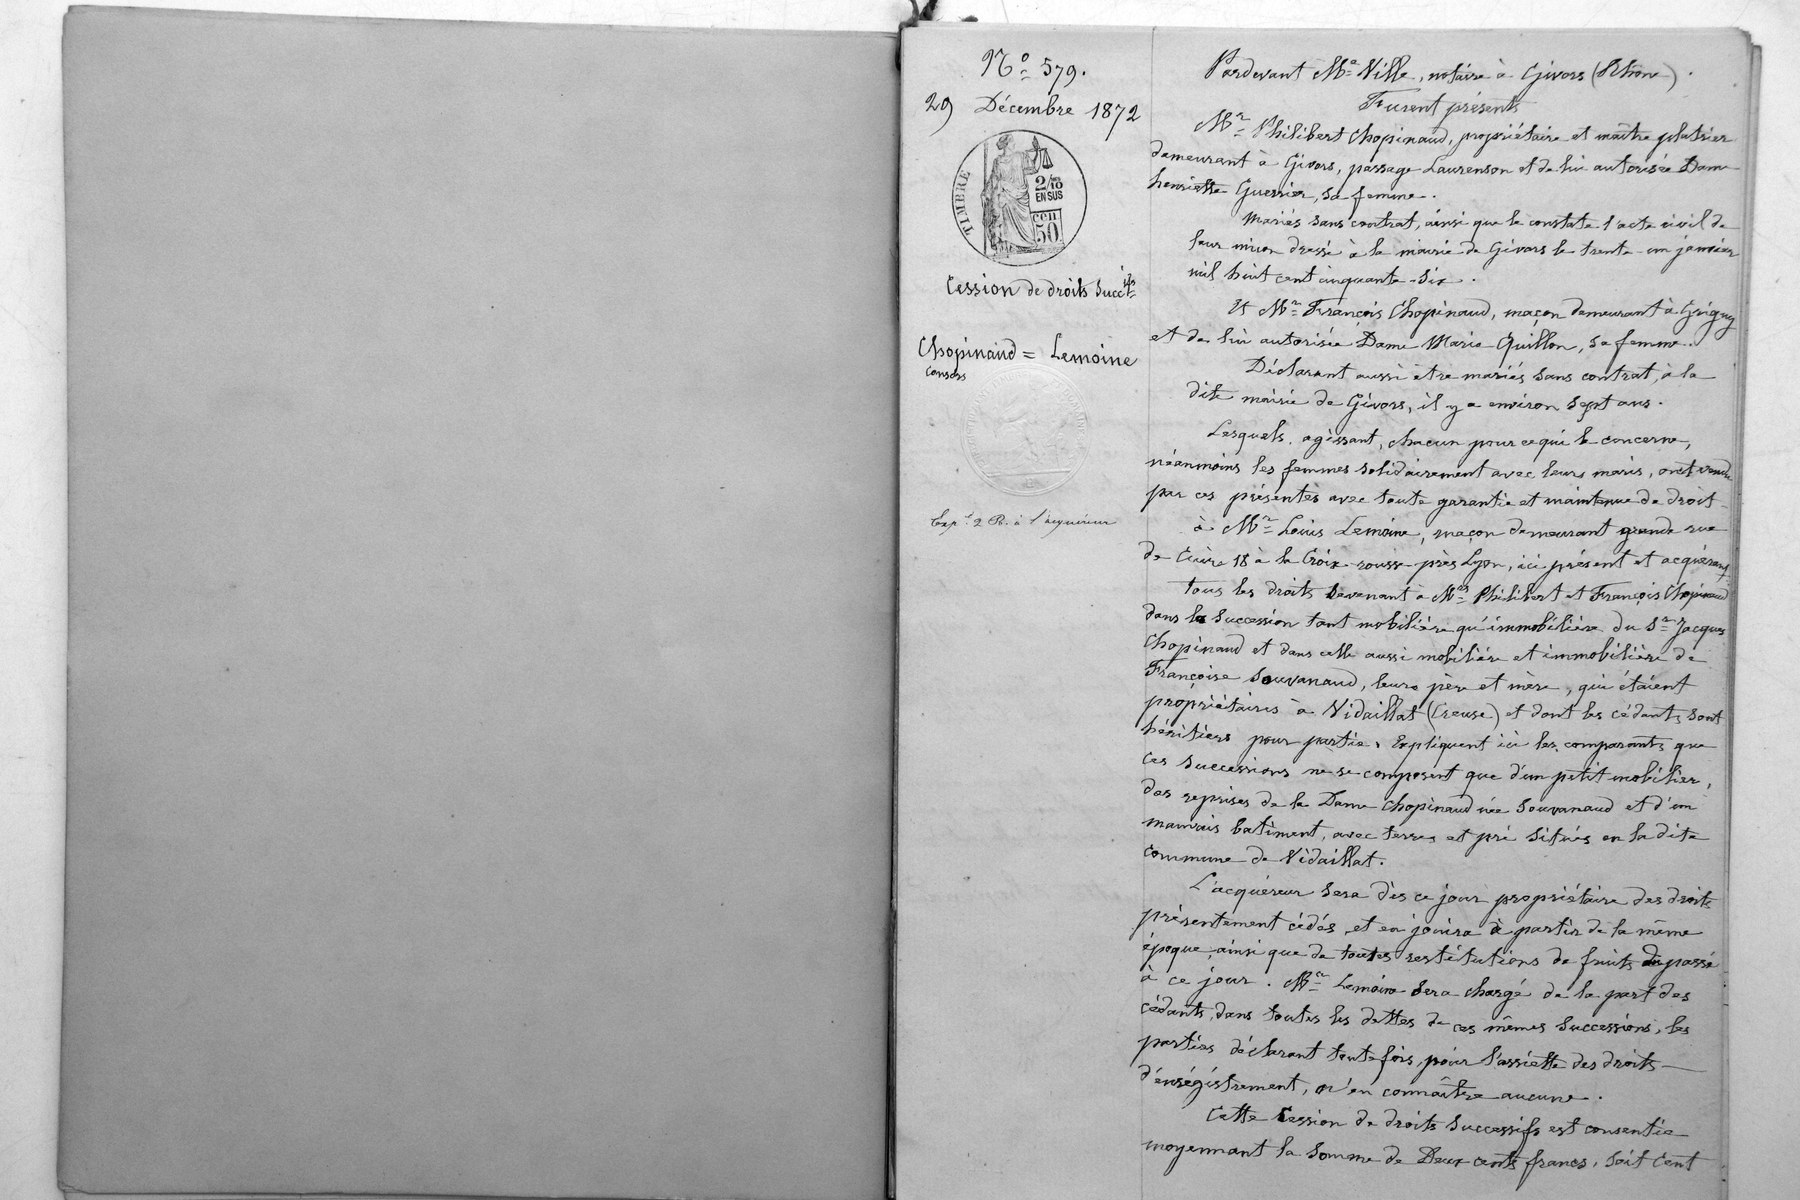 No 579.
29 Décembre 1872
TIMBRE
2/10
EN SUS
cen
50
Cession de droits Succifs
Chopinaud = Lemoine
Consors
Expn 2 R. à l'acquéreur
Pardevant Me Ville, notaire à Givors (Rhône).
Furent présents
Mr Philibert Chopinaud, propriétaire et maître platrier
demeurant à Givors, passage Laurenson et de lui autorisée Dame
henriette Guerrier, sa femme.
Mariés sans contrat, ainsi que le constate l'acte civil de
leur union dressé à la mairie de Givors le trente-un janvier
mil huit cent cinquante-six.
Et Mr François Chopinaud, maçon demeurant à Grigny
et de lui autorisée Dame Marie Quillon, sa femme.
Déclarant aussi être mariés sans contrat, à la
dite mairie de Givors, il y a environ sept ans.
Lesquels, agissant, chacun pour ce qui le concerne,
néanmoins les femmes solidairement avec leurs maris, ont vendu
par ces présentes avec toute garantie et maintenue de droit
à Mr Louis Lemoine, maçon demeurant grande rue
de Cuire 18 à la Croix-rousse près Lyon, ici présent et acquérant
tous les droits revenant à Mrs Philibert et François Chopinaud
dans la succession tant mobilière qu'immobilière du Sr Jacques
Chopinaud et dans celle aussi mobilière et immobilière de
Françoise Souvanaud, leurs père et mère, qui étaient
propriétaires à Vidaillat (Creuse) et dont les cédants sont
héritiers pour partie. Expliquent ici les comparants que
ces successions ne se composent que d'un petit mobilier,
des reprises de la Dame Chopinaud née Souvanaud et d'un
mauvais batiment, avec terres et pré situés en la dite
commune de Vidaillat.
L'acquéreur sera dès ce jour propriétaire des droits
présentement cédés, et en jouira à partir de la même
époque, ainsi que de toutes restitutions de fruits du passé
à ce jour. Mr Lemoine sera chargé de la part des
cédants, dans toutes les dettes de ces mêmes successions, les
parties déclarant toutefois, pour l'assiette des droits
d'enrégistrement, n'en connaître aucune.
Cette Cession de droits successifs est consentie
moyennant la somme de Deux cents francs, soit Cent